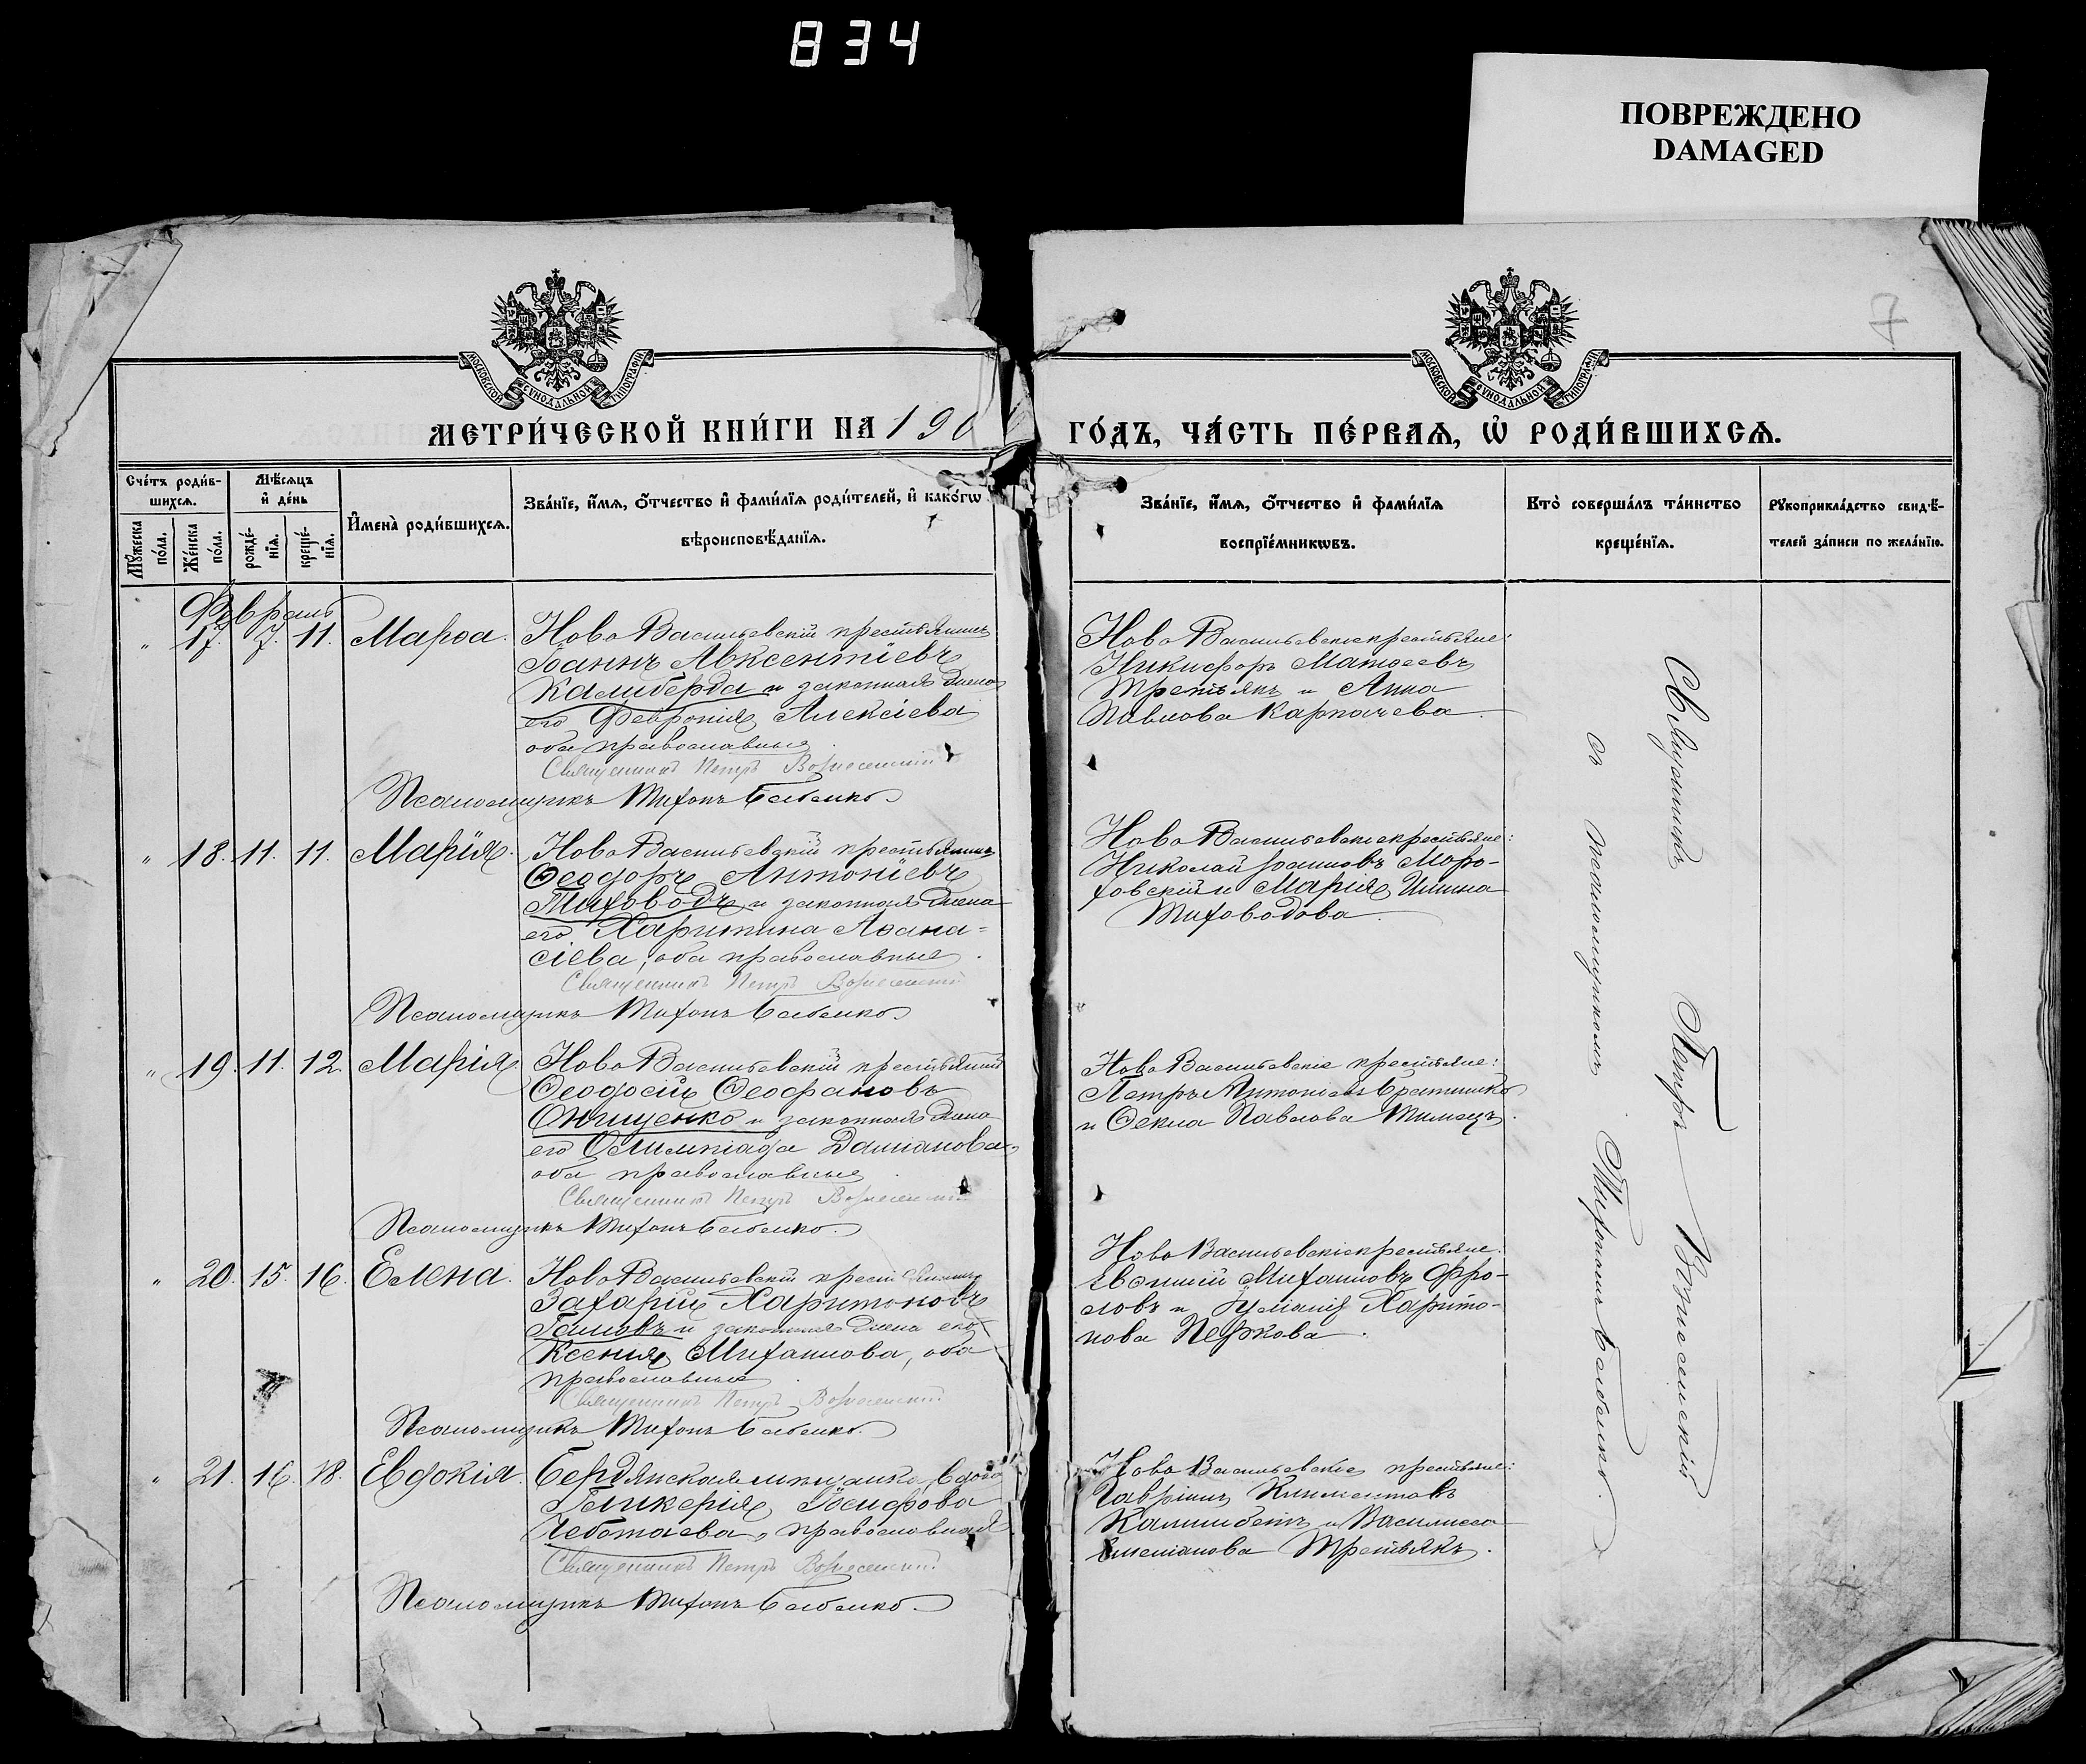 834
ПОВРЕЖДЕНО
DAMAGED
МОСКОВСКОЙ СѴНОДАЛЬНОЙ ТИПОГРАФІИ
МОСКОВСКОЙ СѴНОДАЛЬНОЙ ТИПОГРАФІИ
7
МЕТРИ́ЧЕСКОЙ КНИ́ГИ НА 190
ГО́ДЪ, ЧА́СТЬ ПЕ́РВАѦ, Ѡ҆ РОДИ́ВШИХСѦ.
Сче́тъ роди́в-
шихсѧ.
Мѣ́сѧцъ
и҆ де́нь
Мꙋ́жеска по́ла.
Же́нска по́ла.
рожде́-
нїѧ.
креще́-
нїѧ.
И҆мена̀ роди́вшихсѧ.
Зва́нїе, и҆́мѧ, ѻ҆́тчество и҆ фами́лїѧ роди́телей, и҆ како́гѡ
вѣроисповѣ́данїѧ.
Зва́нїе, и҆́мѧ, ѻ҆́тчество и҆ фами́лїѧ
воспрїе́мникѡвъ.
Кто̀ соверша́лъ та́инство
креще́нїѧ.
Рꙋкоприкла́дство свидѣ́-
телей за́писи по жела́нїю.
Февраль
" 17. 7. 11. Марѳа. Ново Васильевскій крестьянинъ
Іоаннъ Авксентіевъ
Калиберда и законная жена
его Феѵронія Алексіева
оба православные
Священникъ Петръ Вознесенскій
Псаломщикъ Тихонъ Бабенко
Ново Васильевскіе крестьяне:
Никифоръ Матѳеевъ
Третьякъ и Анна
Павлова Карпачева.
" 18. 11. 11. Марія. Ново Васильевскій крестьянинъ
Ѳеодоръ Антоніевъ
Тиховодъ и законная жена
его Харитина Аѳана=
сіева, оба православные.
Священникъ Петръ Вознесенскій
Псаломщикъ Тихонъ Бабенко
Ново Васильевскіе крестьяне:
Николай Іоанновъ Моро-
ховскій и Марія Ильина
Тиховодова.
" 19. 11. 12. Марія Ново Васильевскій крестьянинъ
Ѳеодосій Ѳеофановъ
Онищенко и законная жена
его Олимпіада Даміанова,
оба православные.
Священникъ Петръ Вознесенскій
Псаломщикъ Тихонъ Бабенко.
Ново Васильевскіе крестьяне:
Петръ Антоніевъ
и Ѳекла Павлова
" 20. 15. 16. Елена. Ново Васильевскій крестьянинъ
Захарій Харитоновъ
и законная жена его
Ксенія Михаилова, оба
православные.
Священникъ Петръ Вознесенскій
Псаломщикъ Тихонъ Бабенко.
Ново Васильевскіе крестьяне.
Евѳимій Михаиловъ Фро-
ловъ и Іуліанія Харито-
нова
" 21. 16. 18. Евдокія. Бердянская мѣщанка, вдова
Гликерія Іосифова
Чеботаева, православная
Священникъ Петръ Вознесенскій
Псаломщикъ Тихонъ Бабенко.
Ново Васильевскіе крестьяне:
Гавріилъ Климентовъ
и Василисса
Емеліанова Третьякъ.
Священникъ Петръ Вознесенскій
съ псаломщикомъ Тихономъ Бабенко.